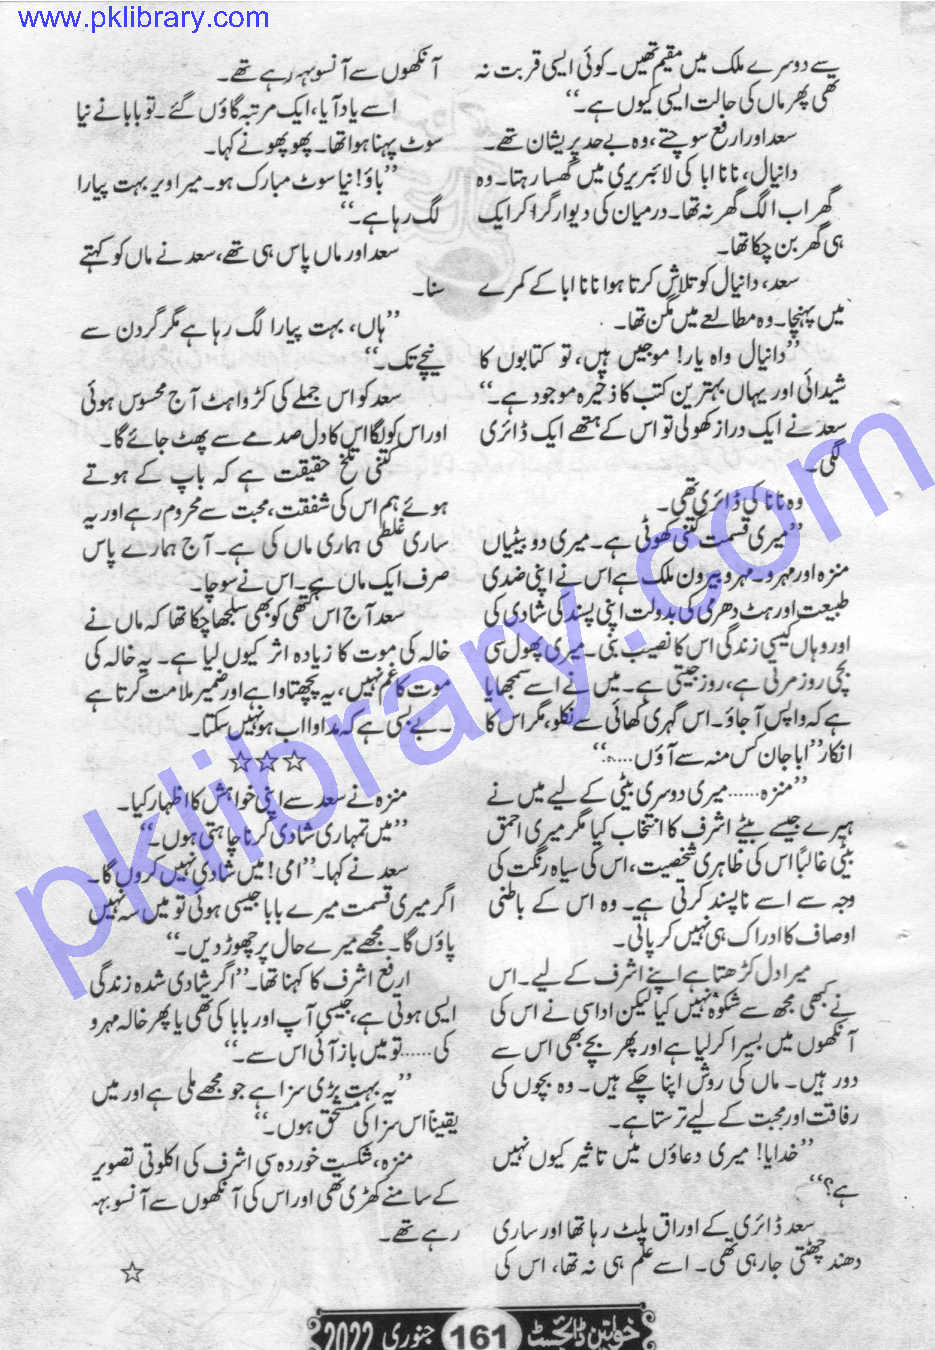 www.pklibrary.com
www.pklibrary.com
سے دوسرے ملک میں مقیم تھیں۔ کوئی ایسی قربت نہ
تھی پھر ماں کی حالت ایسی کیوں ہے۔“
سعد اور ارفع سوچتے، وہ بے حد پریشان تھے۔
دانیال، نانا ابا کی لائبریری میں گھسا رہتا۔ وہ
گھر اب الگ گھر نہ تھا۔ درمیان کی دیوار گرا کر ایک
ہی گھر بن چکا تھا۔
سعد، دانیال کو تلاش کرتا ہوا نانا ابا کے کمرے
میں پہنچا۔ وہ مطالعے میں مگن تھا۔
”دانیال واہ یار! موجیں ہیں، تو کتابوں کا
شیدائی اور یہاں بہترین کتب کا ذخیرہ موجود ہے۔“
سعد نے ایک دراز کھولی تو اس کے ہتھے ایک ڈائری
لگی۔
وہ نانا کی ڈائری تھی۔
”میری قسمت کتنی کھوٹی ہے۔ میری دو بیٹیاں
منزہ اور مہرو۔ مہرو بیرون ملک ہے اس نے اپنی ضدی
طبیعت اور ہٹ دھرمی کی بدولت اپنی پسند کی شادی کی
اور وہاں کیسی زندگی اس کا نصیب بنی۔ میری پھول سی
بچی روز مرتی ہے، روز جیتی ہے۔ میں نے اسے سمجھایا
ہے کہ واپس آ جاؤ۔ اس گہری کھائی سے نکلو، مگر اس کا
انکار ”ابا جان کس منہ سے آؤں.....“
”منزہ...... میری دوسری بیٹی کے لیے میں نے
ہیرے جیسے بیٹے اشرف کا انتخاب کیا مگر میری احمق
بیٹی غالباً اس کی ظاہری شخصیت، اس کی سیاہ رنگت کی
وجہ سے اسے ناپسند کرتی ہے۔ وہ اس کے باطنی
اوصاف کا ادراک ہی نہیں کر پاتی۔
میرا دل کڑھتا ہے اپنے اشرف کے لیے۔ اس
نے کبھی مجھ سے شکوہ نہیں کیا لیکن اداسی نے اس کی
آنکھوں میں بسیرا کر لیا ہے اور پھر بچے بھی اس سے
دور ہیں۔ ماں کی روش اپنا چکے ہیں۔ وہ بچوں کی
رفاقت اور محبت کے لیے ترستا ہے۔
”خدایا! میری دعاؤں میں تاثیر کیوں نہیں
ہے؟“
سعد ڈائری کے اوراق پلٹ رہا تھا اور ساری
دھند چھٹتی جا رہی تھی۔ اسے علم ہی نہ تھا، اس کی
آنکھوں سے آنسو بہہ رہے تھے۔
اسے یاد آیا، ایک مرتبہ گاؤں گئے۔ تو بابا نے نیا
سوٹ پہنا ہوا تھا۔ پھوپھو نے کہا۔
”باؤ! نیا سوٹ مبارک ہو۔ میرا ویر بہت پیارا
لگ رہا ہے۔“
سعد اور ماں پاس ہی تھے، سعد نے ماں کو کہتے
سنا۔
”ہاں، بہت پیارا لگ رہا ہے مگر گردن سے
نیچے تک۔“
سعد کو اس جملے کی کڑواہٹ آج محسوس ہوئی
اور اس کو لگا اس کا دل صدمے سے پھٹ جائے گا۔
کتنی تلخ حقیقت ہے کہ باپ کے ہوتے
ہوئے ہم اس کی شفقت، محبت سے محروم رہے اور یہ
ساری غلطی ہماری ماں کی ہے۔ آج ہمارے پاس
صرف ایک ماں ہے۔ اس نے سوچا۔
سعد آج اس گتھی کو بھی سلجھا چکا تھا کہ ماں نے
خالہ کی موت کا زیادہ اثر کیوں لیا ہے۔ یہ خالہ کی
موت کا غم نہیں، یہ پچھتاوا ہے اور ضمیر ملامت کرتا ہے
۔ بے بسی ہے کہ مداوا اب ہو نہیں سکتا۔
☆☆☆
منزہ نے سعد سے اپنی خواہش کا اظہار کیا۔
”میں تمہاری شادی کرنا چاہتی ہوں۔“
سعد نے کہا۔ ”امی! میں شادی نہیں کروں گا۔
اگر میری قسمت میرے بابا جیسی ہوئی تو میں سہہ نہیں
پاؤں گا۔ مجھے میرے حال پر چھوڑ دیں۔“
ارفع اشرف کا کہنا تھا۔ ”اگر شادی شدہ زندگی
ایسی ہوتی ہے، جیسی آپ اور بابا کی تھی یا پھر خالہ مہرو
کی..... تو میں باز آئی اس سے۔“
”یہ بہت بڑی سزا ہے جو مجھے ملی ہے اور میں
یقیناً اس سزا کی مستحق ہوں۔“
منزہ، شکست خوردہ سی اشرف کی اکلوتی تصویر
کے سامنے کھڑی تھی اور اس کی آنکھوں سے آنسو بہہ
رہے تھے۔
☆
خواتین ڈائجسٹ 161 جنوری 2022